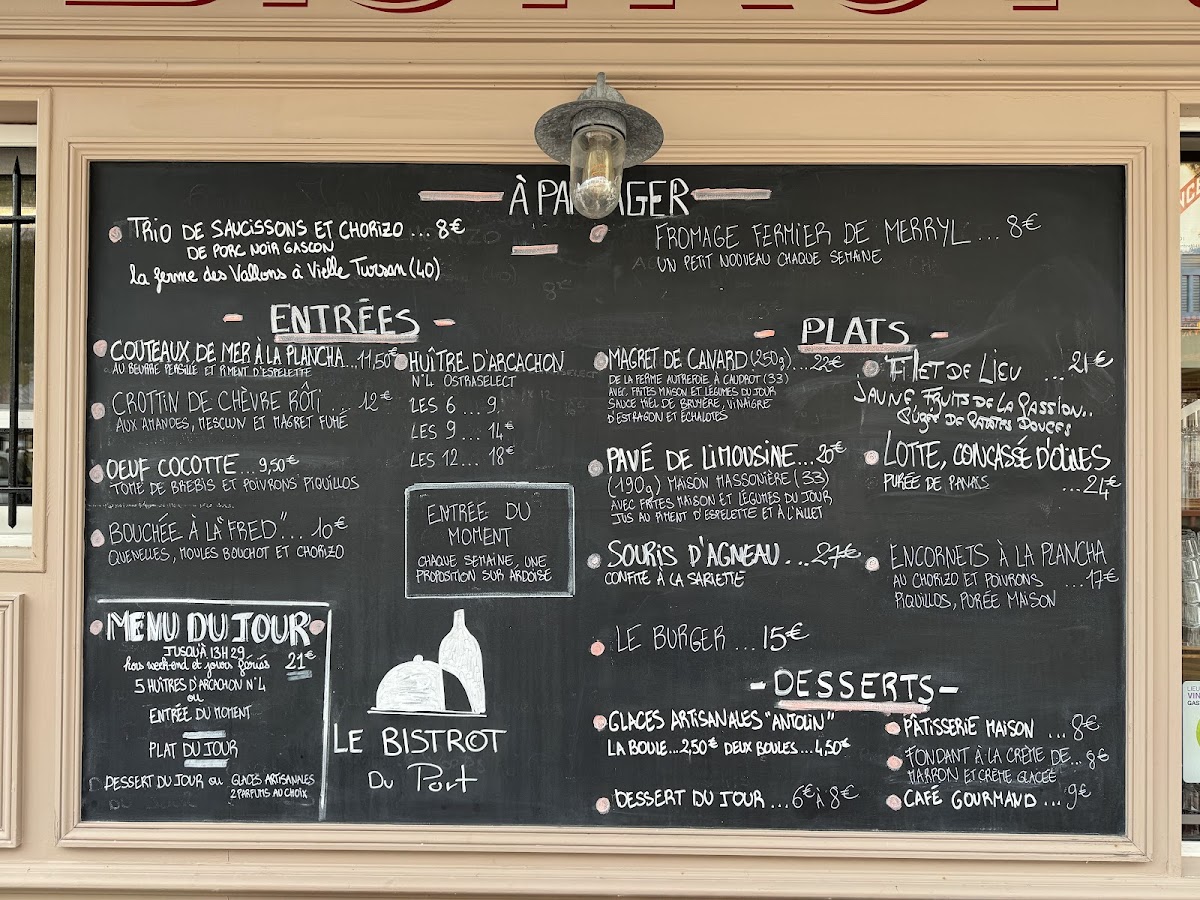 À PARTAGER
TRIO DE SAUCISSONS ET CHORIZO ... 8€
DE PORC NOIR GASCON
la ferme des Vallons à Vielle Tursan (40)
FROMAGE FERMIER DE MERRYL ... 8€
UN PETIT NOUVEAU CHAQUE SEMAINE
ENTRÉES
COUTEAUX DE MER À LA PLANCHA ... 11,50€
AU BEURRE PERSILLÉ ET PIMENT D'ESPELETTE
CROTTIN DE CHÈVRE RÔTI 12€
AUX AMANDES, MESCLUN ET MAGRET FUMÉ
OEUF COCOTTE ... 9,50€
TOME DE BREBIS ET POIVRONS PIQUILLOS
BOUCHÉE À LA "FRED" ... 10€
QUENELLES, MOULES BOUCHOT ET CHORIZO
HUÎTRE D'ARCACHON
N°4 OSTRASELECT
LES 6 ... 9
LES 9 ... 14€
LES 12 ... 18€
ENTRÉE DU
MOMENT
CHAQUE SEMAINE, UNE
PROPOSITION SUR ARDOISE
MENU DU JOUR
JUSQU'À 13H29
hors week-end et jours fériés 21€
5 HUÎTRES D'ARCACHON N°4
ou
ENTRÉE DU MOMENT
PLAT DU JOUR
DESSERT DU JOUR ou GLACES ARTISANALES
2 PARFUMS AU CHOIX
LE BISTROT
DU Port
PLATS
MAGRET DE CANARD (250g) ... 22€
DE LA FERME AUTREFOIE À CAUDROT (33)
AVEC FRITES MAISON ET LÉGUMES DU JOUR
SAUCE MIEL DE BRUYÈRE, VINAIGRE
D'ESTRAGON ET ÉCHALOTES
PAVÉ DE LIMOUSINE ... 20€
(190g) MAISON MASSONIÈRE (33)
AVEC FRITES MAISON ET LÉGUMES DU JOUR
JUS AU PIMENT D'ESPELETTE ET À L'AILLET
SOURIS D'AGNEAU ... 27€
CONFITE À LA SARIETTE
LE BURGER ... 15€
FILET DE LIEU ... 21€
JAUNE, FRUITS DE LA PASSION..
PURÉE DE PATATES DOUCES
LOTTE, CONCASSÉ D'OLIVES
PURÉE DE PANAIS ... 24€
ENCORNETS À LA PLANCHA
AU CHORIZO ET POIVRONS ... 17€
PIQUILLOS, PURÉE MAISON
- DESSERTS -
GLACES ARTISANALES "ANTOLIN"
LA BOULE ... 2,50€ DEUX BOULES ... 4,50€
DESSERT DU JOUR ... 6€ À 8€
PÂTISSERIE MAISON ... 8€
FONDANT À LA CRÈME DE ... 8€
MARRON ET CRÈME GLACÉE
CAFÉ GOURMAND ... 9€